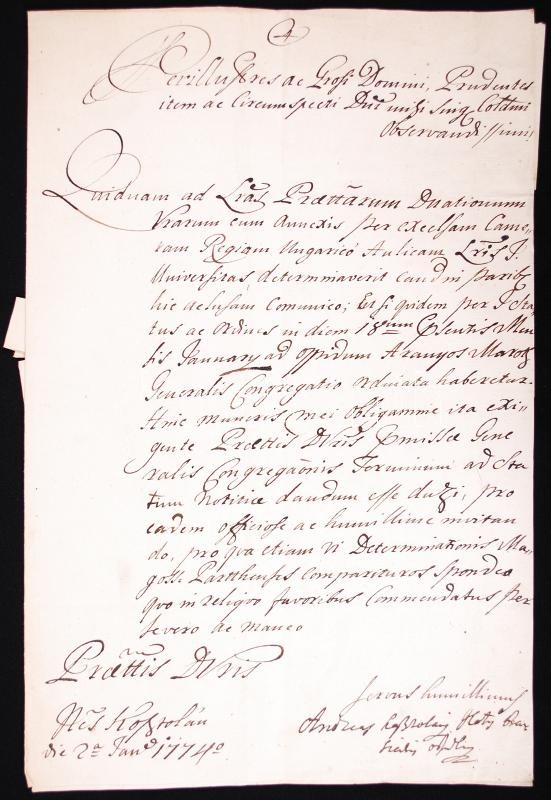 4
Perillustres ac Grosi Domini, Prudentes
item ac Circumspecti Dni mihi sing Coldmi
Observandissimi
Quidnam ad Lras Praettarum Dnationum
Vrarum cum Annexis per excelsam Came-
ram Regiam Ungarico Aulicam Lris I.
Universitas, determinaverit eand in paribg
hic aclusam Comunico; Et si quidem per I Sta
tus ac Ordines in diem 18vam psentis Men
sis January ad oppidum Aranyos Maroth
Generalis Congregatio ordinata haberetur.
Hinc muneris mei obligamine ita exi-
gente Praettis DVris pmissae Gene
ralis Congregaonis Terminum ad Sta
tum notitiae dandum esse duxi, pro
eadem officiose ac humillime invitan
do, pro qua etiam vi Determinationis
comparituros spondeo
quo in reliquo favoribus Commendatus per
severo ac maneo
Praettis DVris
servus humillimus
Nês Kosztolán
Andreas Kosztolany
die 2a Janu 1774o